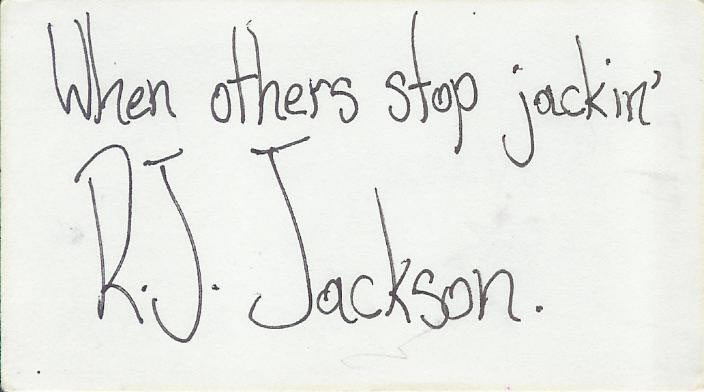 When others stop jackin'
R.J. Jackson.